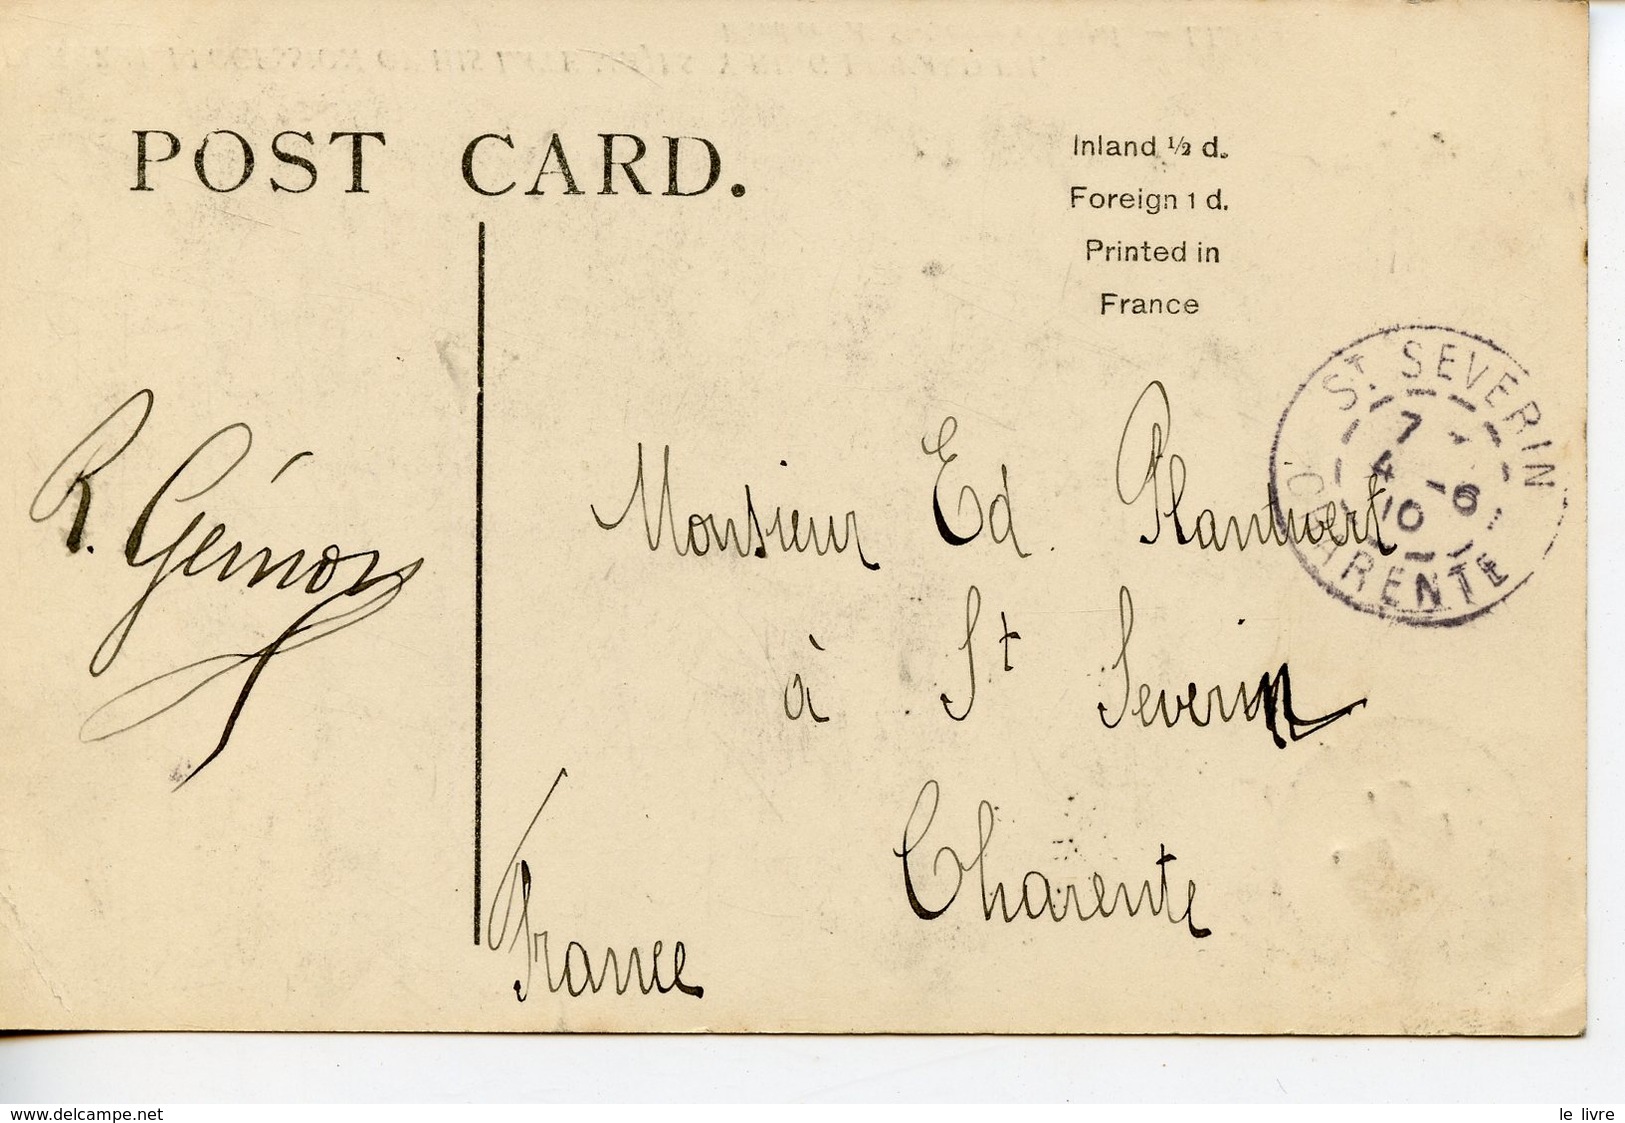 POST CARD.
Inland ½ d.
Foreign 1 d.
Printed in
France
ST. SEVERIN
7
4 - 6
10
CHARENTE
R. Gémon
Monsieur Ed. Plantivert
à St Severin
Charente
France
www.delcampe.net
le livre